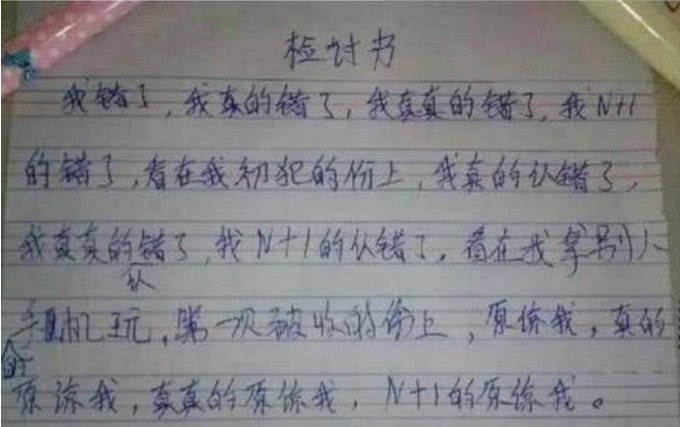 检讨书
我错了，我真的错了，我真真的错了，我N+1
的错了，看在我初犯的份上，我真的认错了，
我真真的认错了，我N+1的认错了。看在我拿别人
的手机玩，第一次被收的份上，原谅我，真的
原谅我，真真的原谅我，N+1的原谅我。